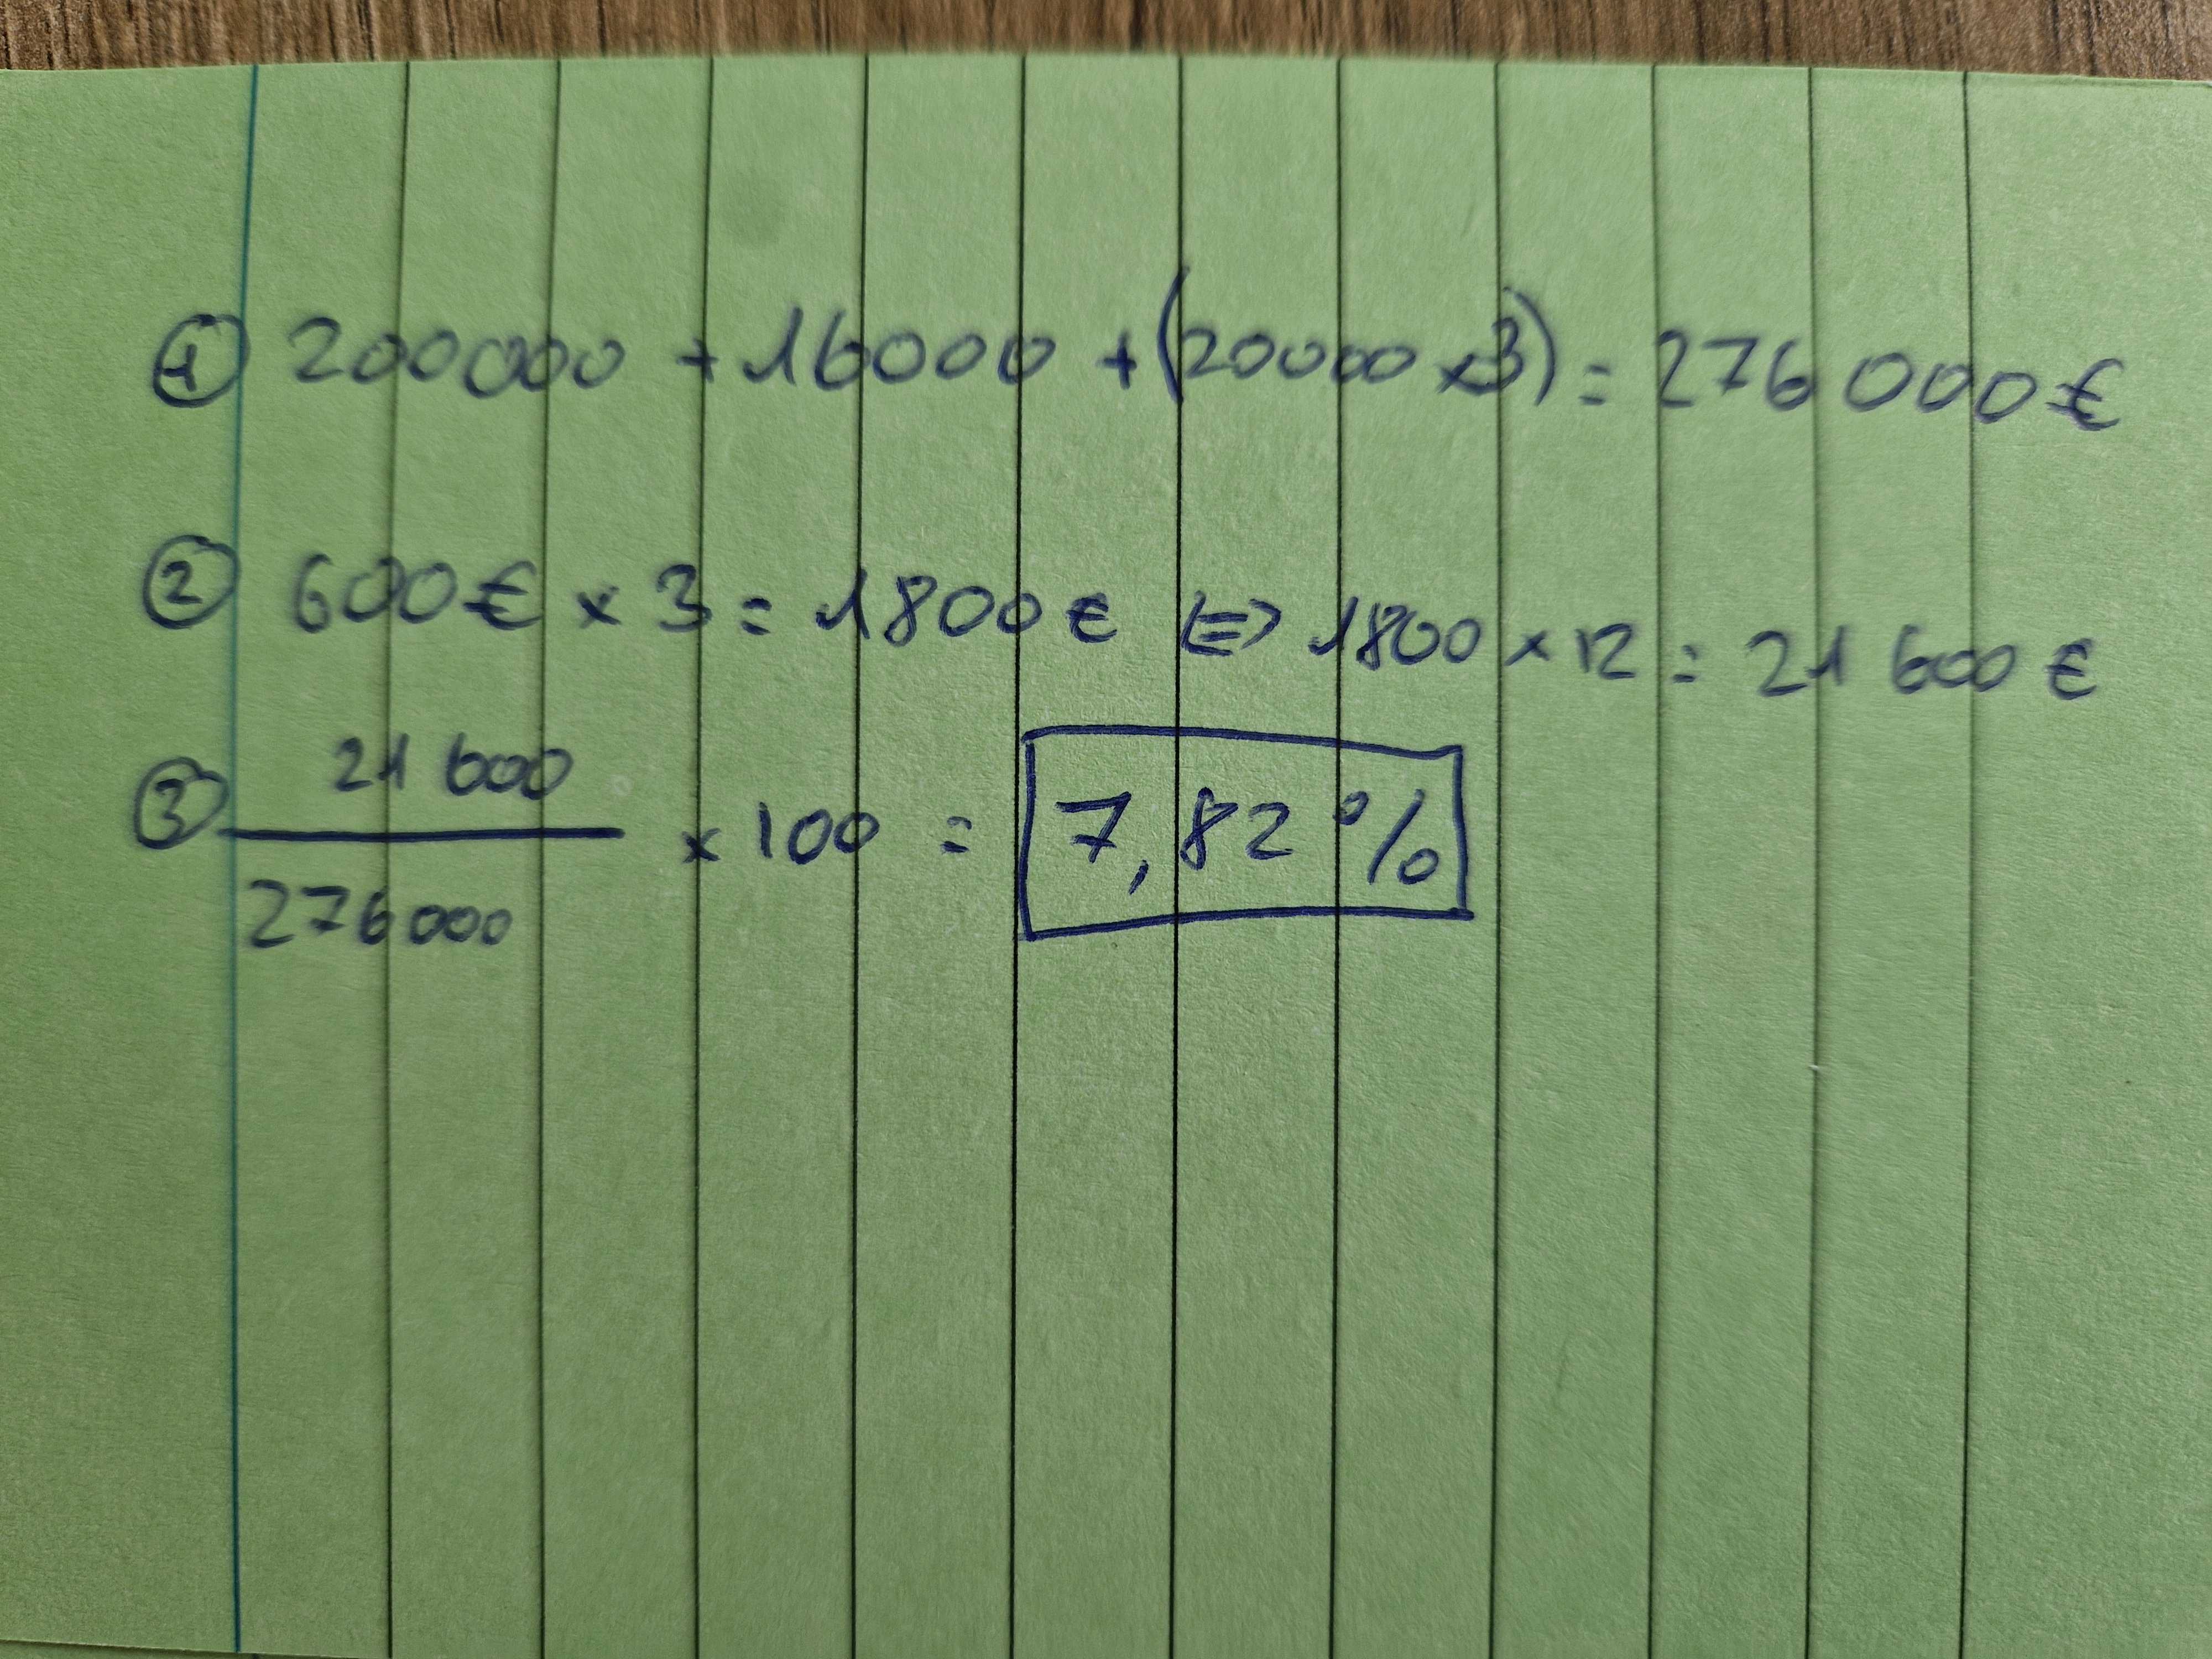 ① 200000 + 16000 + (20000 x3) = 276 000€
② 600€ x 3 = 1800€ <=> 1800 x 12 = 21 600€
③ 21 600
276000
x 100 = 7,82%